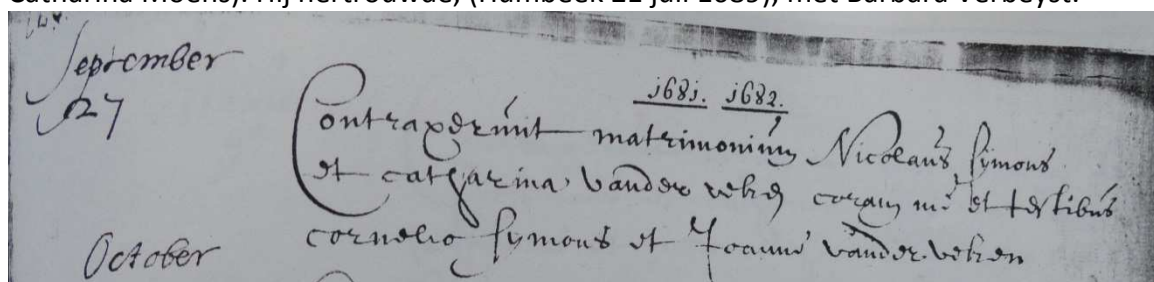 Catharina Moens). Hij hertrouwde, (Humbeek 22 juli 1685), met Barbara Verbeyst.
September
27
j68j. j682.
Contraxerunt matrimonium Nicolaus Symons
et catharina vander veken coram me et testibus
cornelio Symons et Joanne vander veken
October